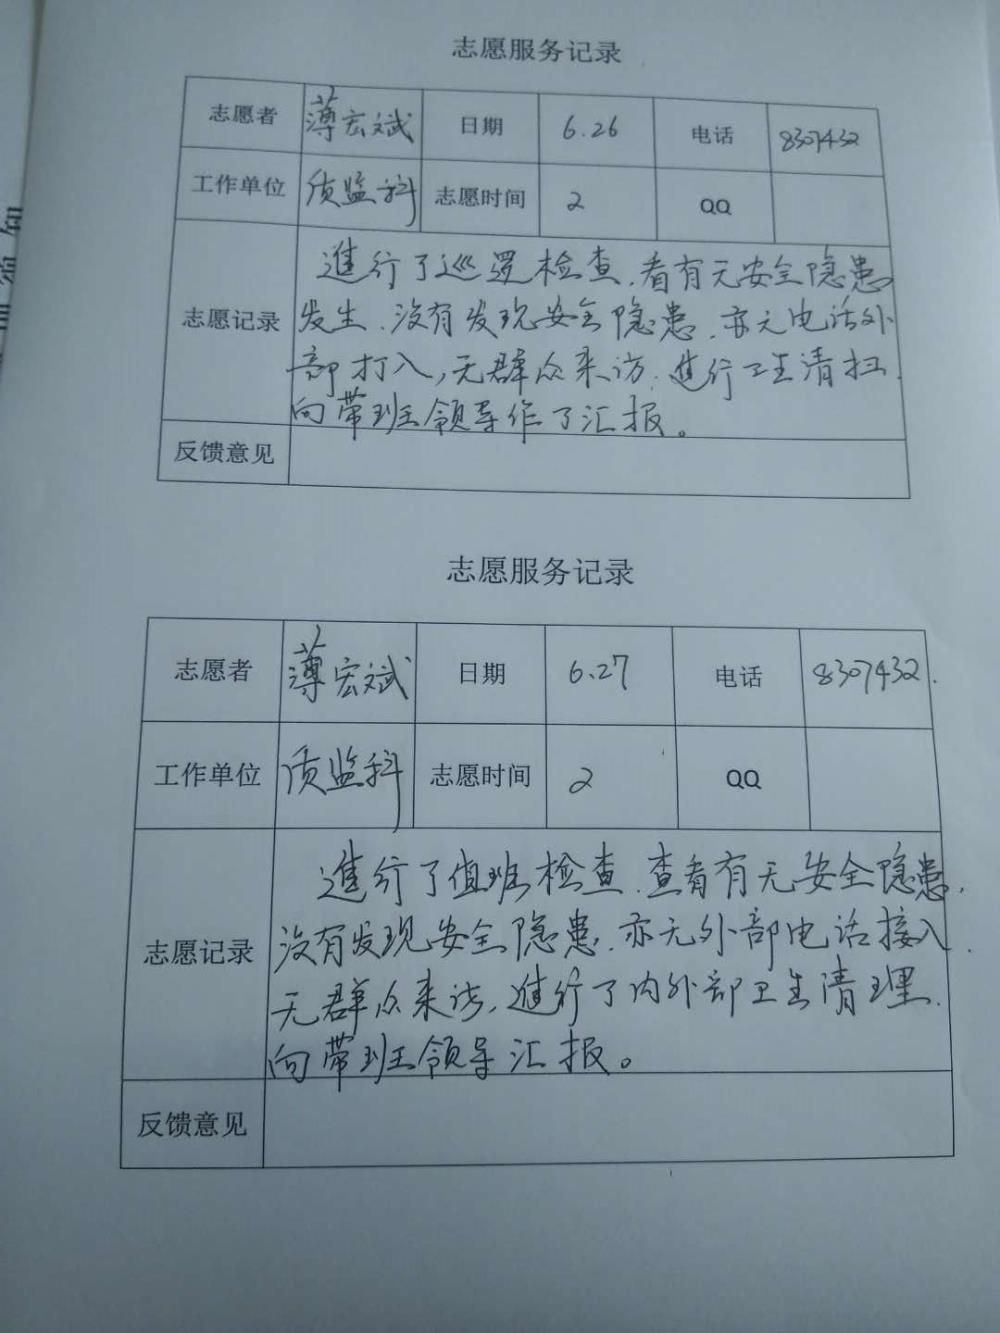 志愿服务记录
志愿者 薄宏斌 日期 6.26 电话 8307432
工作单位 质监科 志愿时间 2 QQ
志愿记录
進行了巡逻检查,看有无安全隐患
发生.没有发现安全隐患.亦无电话外
部打入,无群众来访.進行卫生清扫.
向带班领导作了汇报。
反馈意见
志愿服务记录
志愿者 薄宏斌 日期 6.27 电话 8307432.
工作单位 质监科 志愿时间 2 QQ
志愿记录
進行了值班检查.查看有无安全隐患.
没有发现安全隐患.亦无外部电话接入.
无群众来访,進行了内外部卫生清理.
向带班领导汇报。
反馈意见